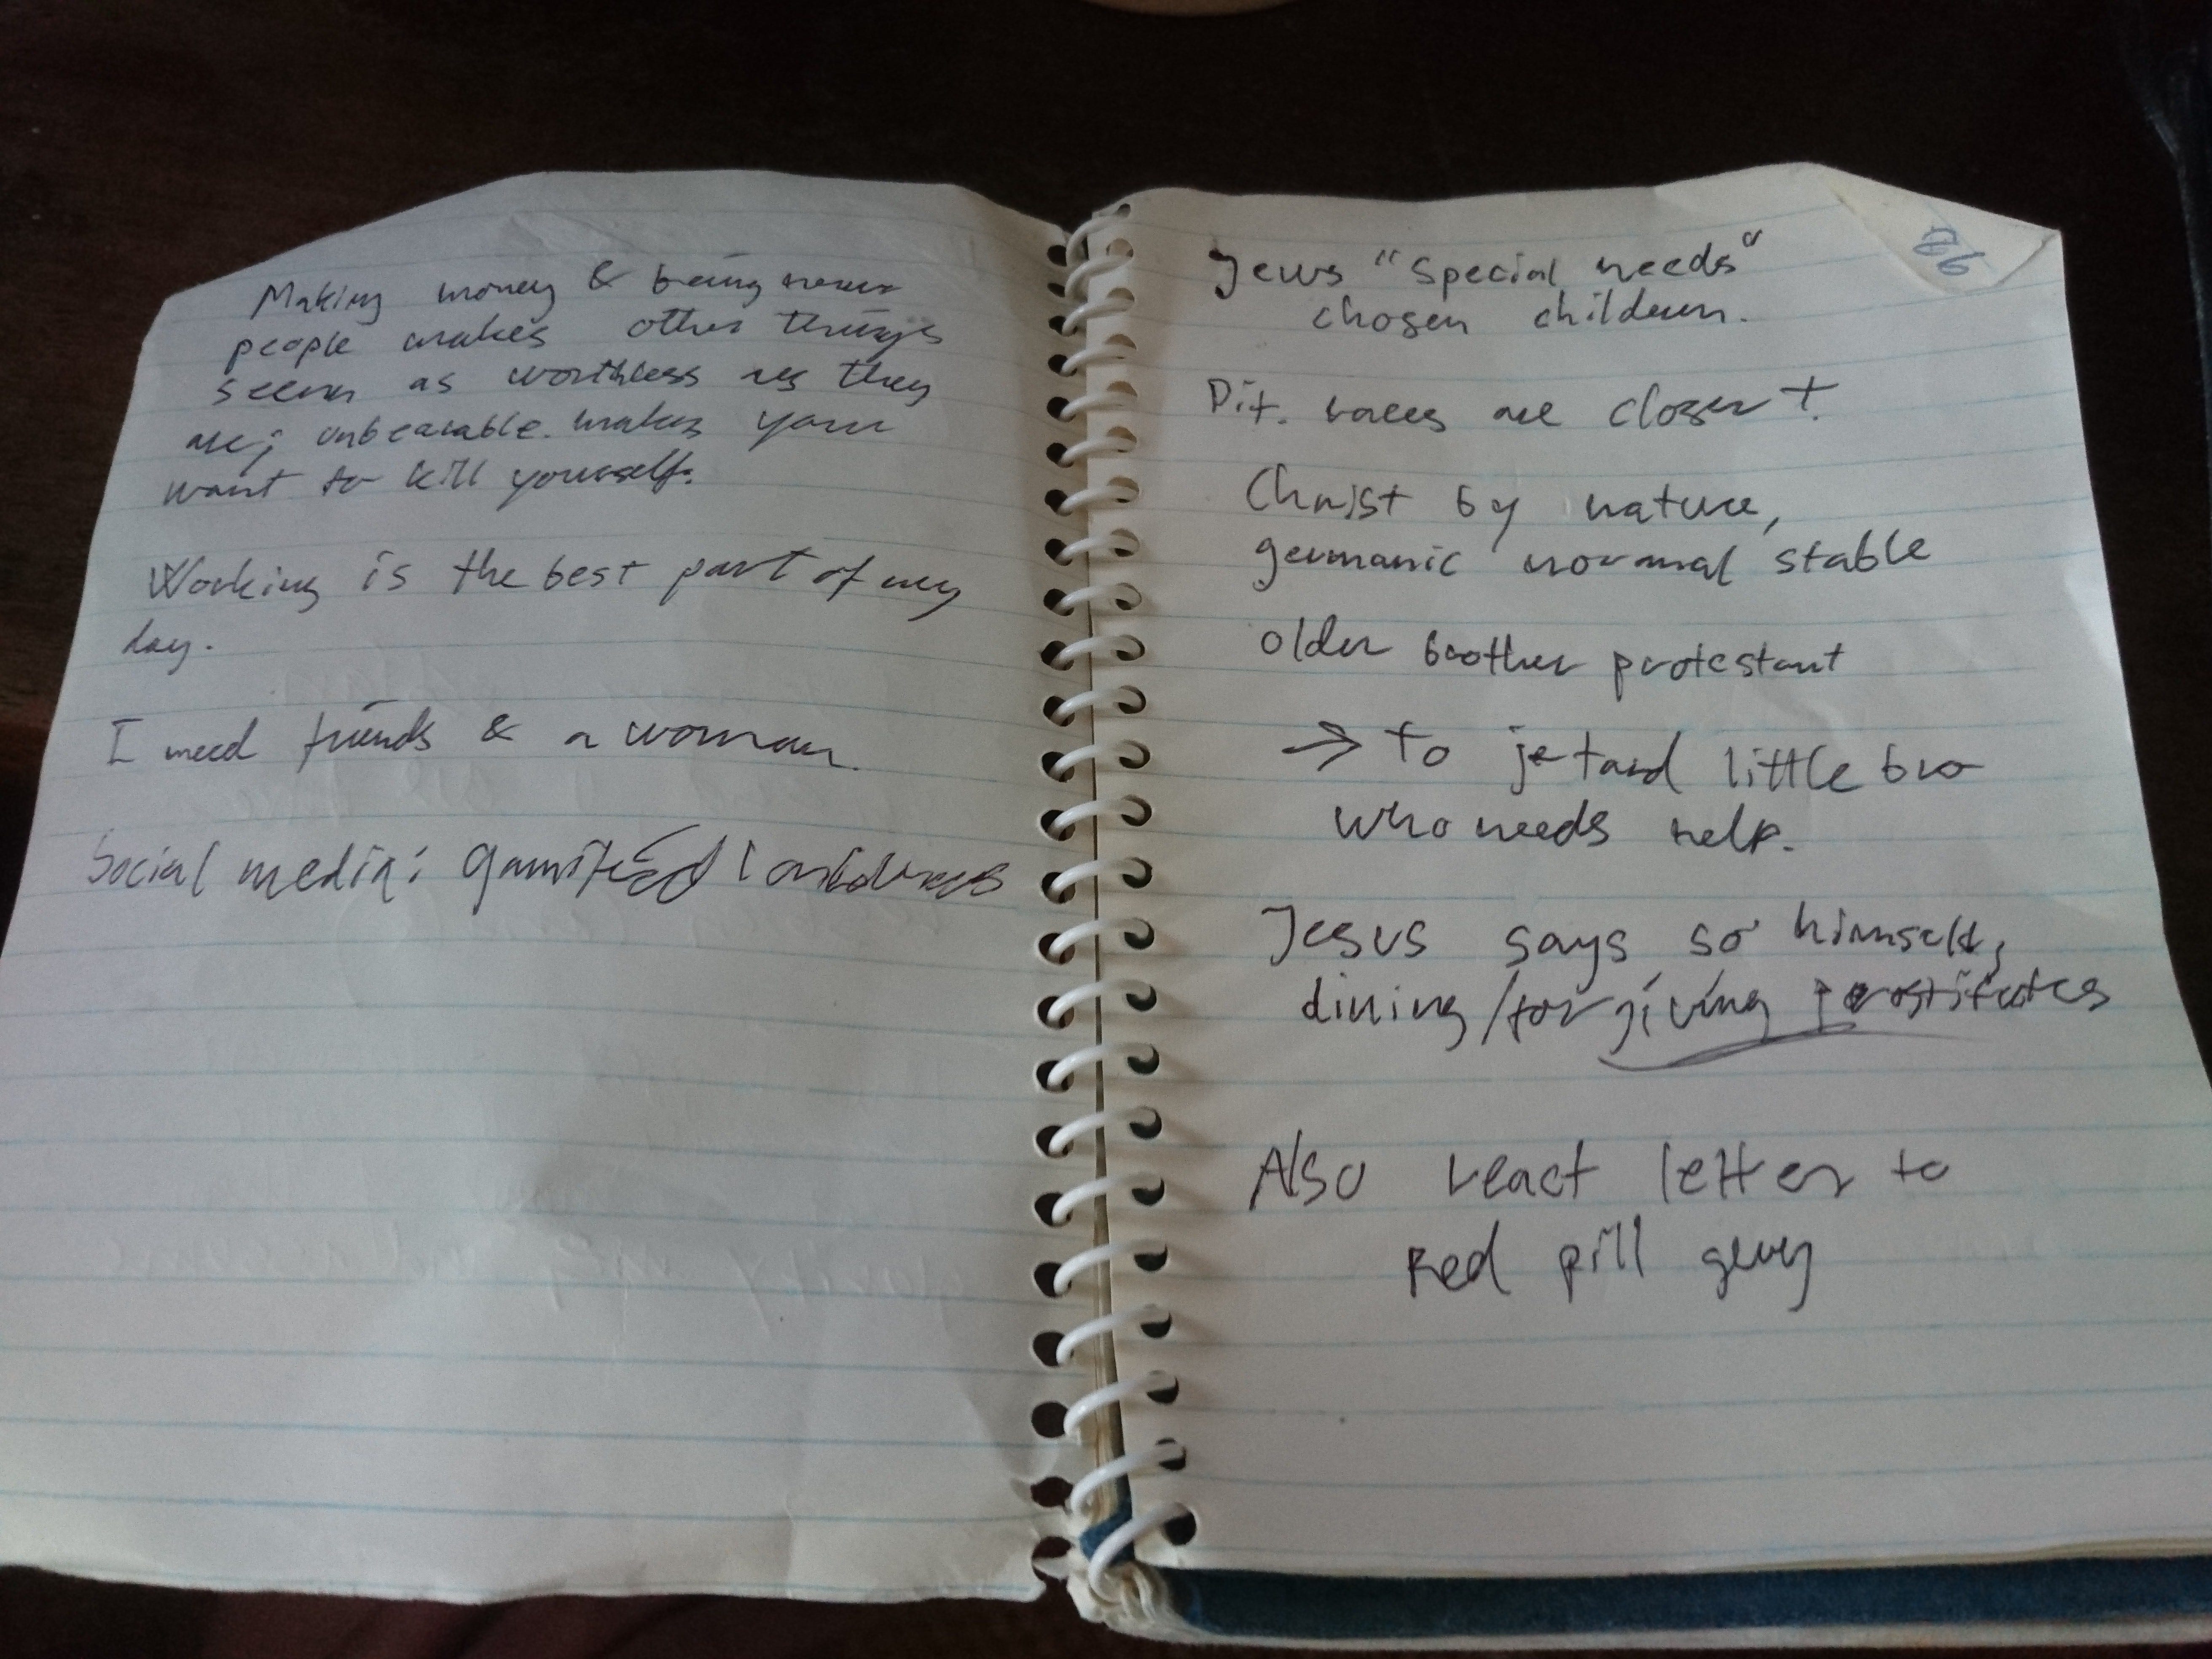 Making money & being near
people makes other things
seem as worthless as they
are; unbearable. makes you
want to kill yourself.
Working is the best part of my
day.
I need friends & a woman.
Social media: gamified loneliness
96
Jews "special needs"
chosen children.
Dif. races are closer t.
Christ by nature,
germanic normal stable
older brother protestant
→ to little bro
who needs help.
Jesus says so himself,
dining/forgiving prostitutes
Also react letter to
Red pill guy